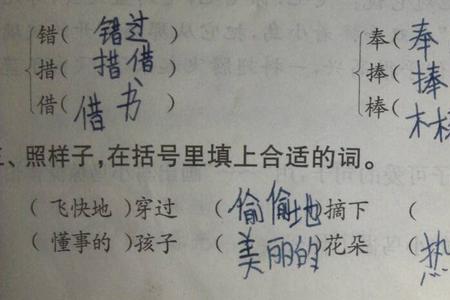 错( 错过 ) 奉( 奉
措( 措借 ) 捧( 捧
借( 借书 ) 棒(
、照样子,在括号里填上合适的词。
( 飞快地 )穿过 ( 偷偷地 )摘下 (
( 懂事的 )孩子 ( 美丽的 )花朵 热